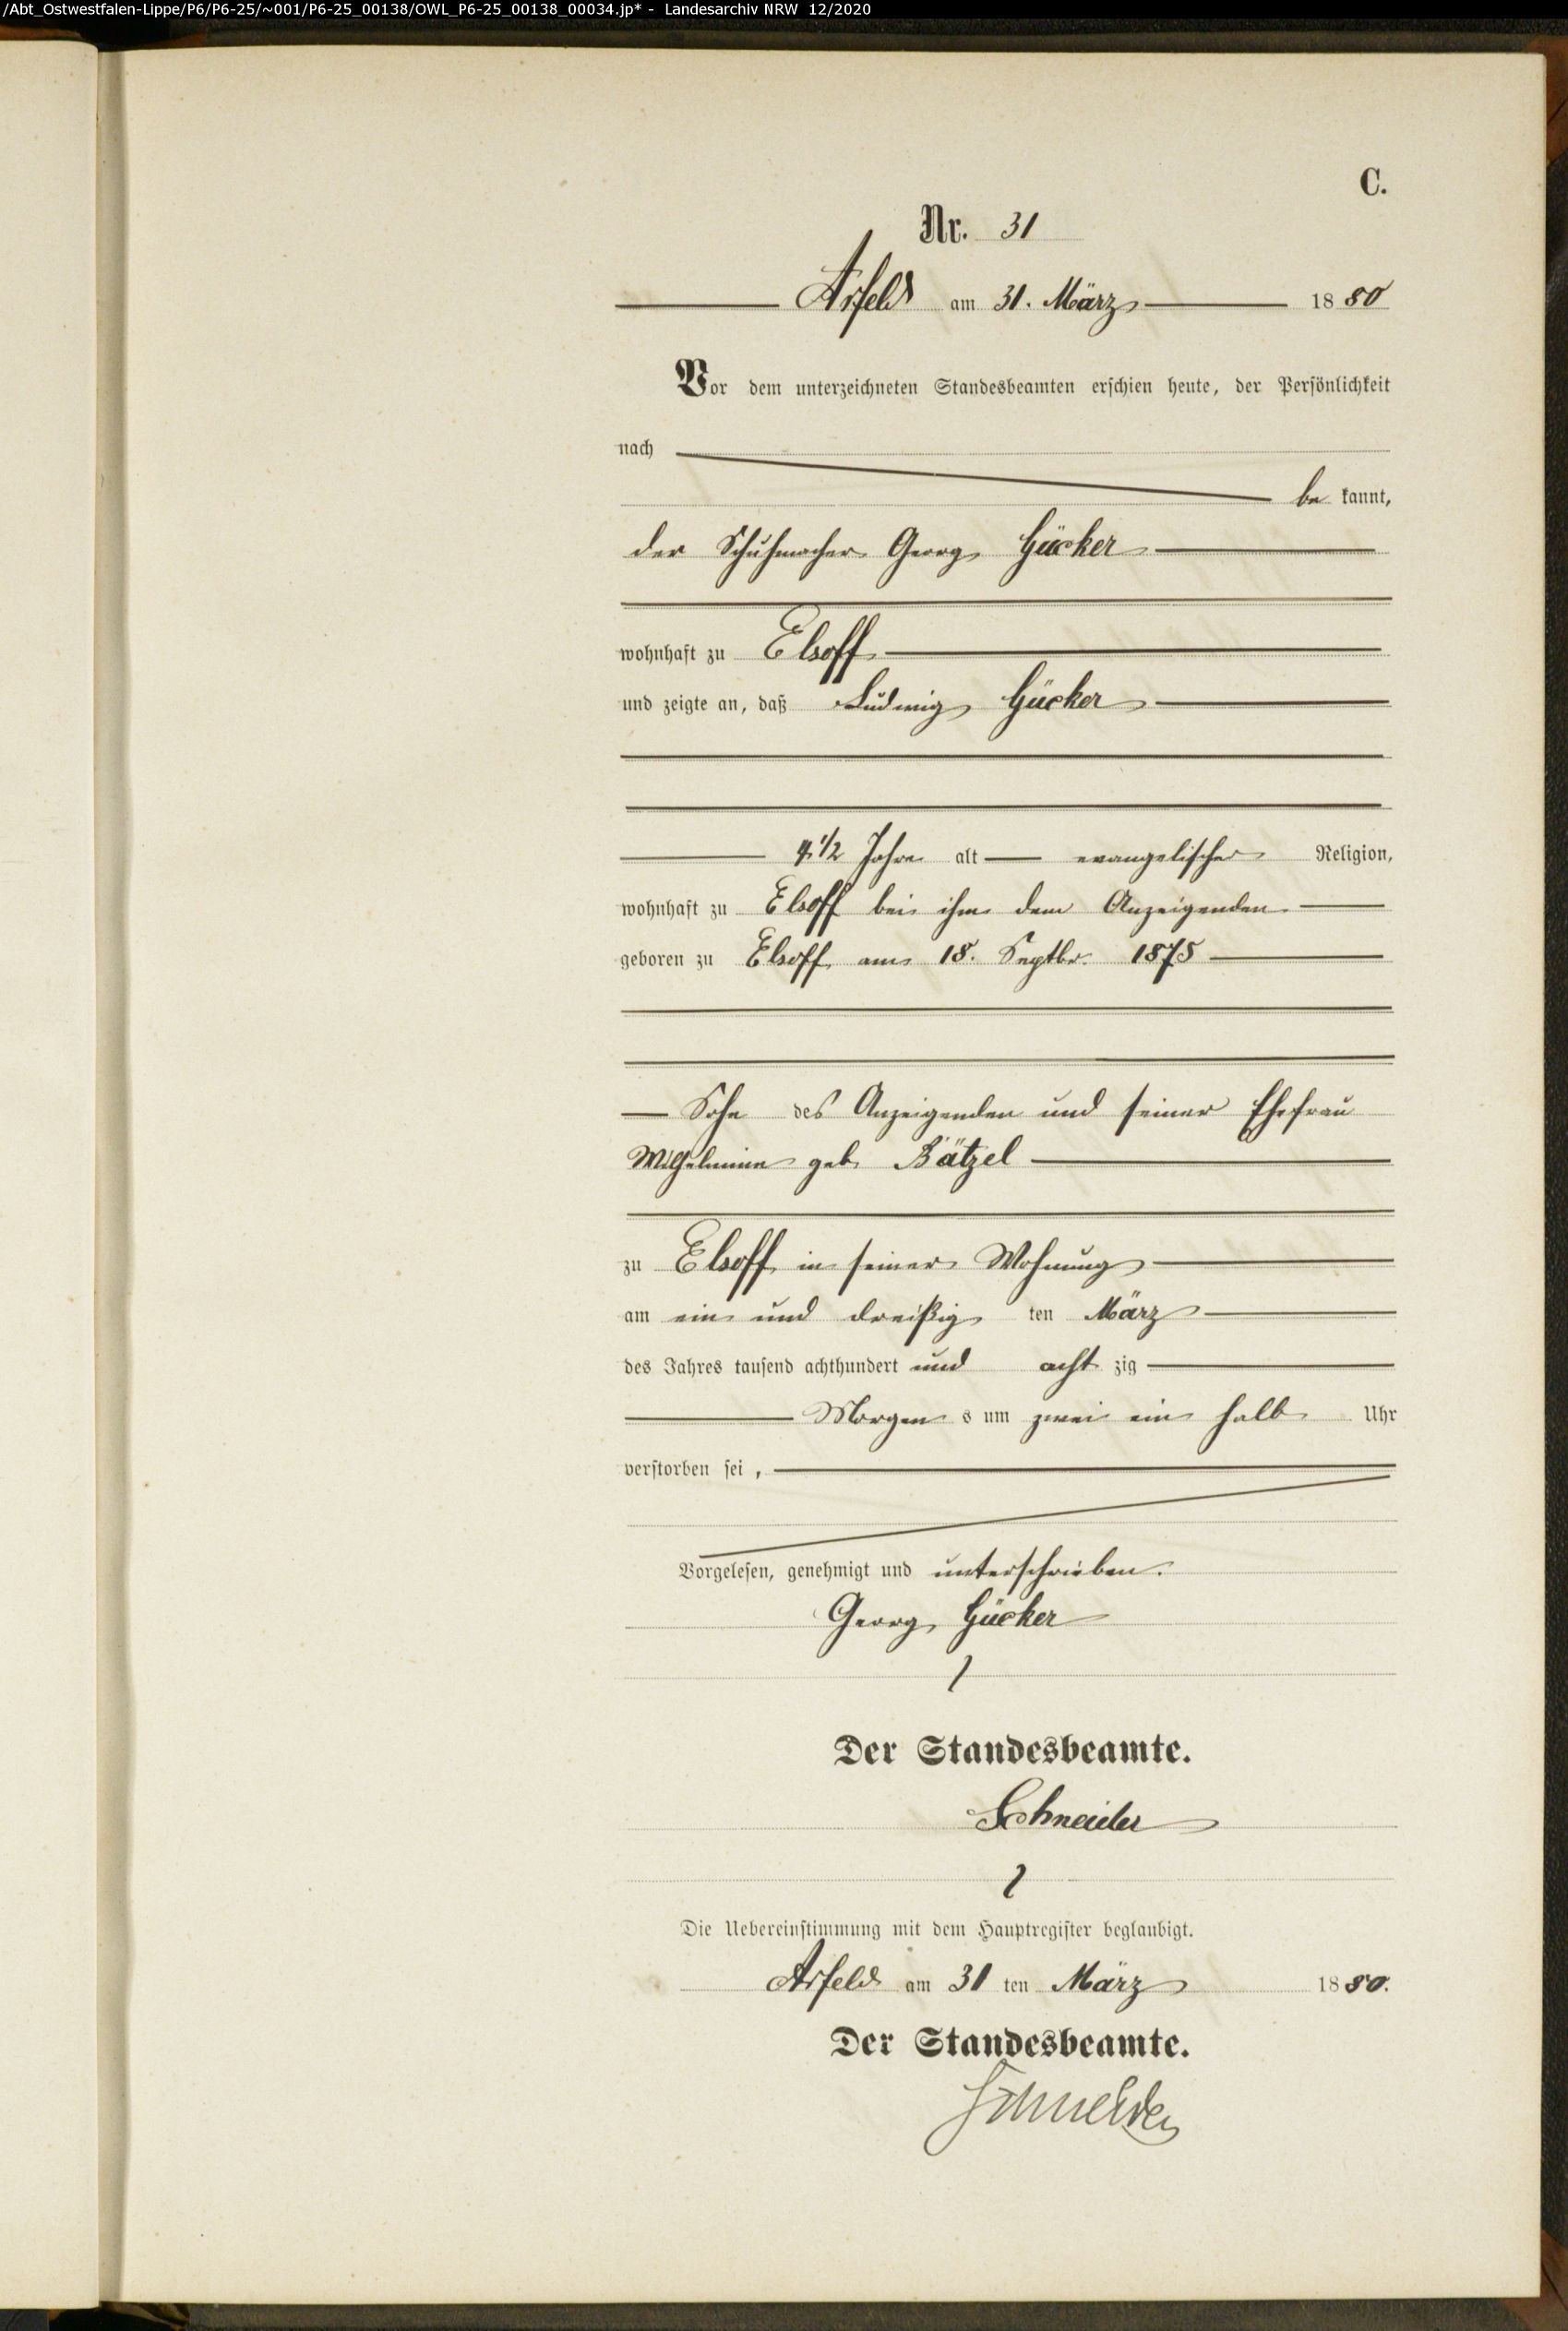 /Abt_Ostwestfalen-Lippe/P6/P6-25/~001/P6-25_00138/OWL_P6-25_00138_00034.jp* - Landesarchiv NRW 12/2020
C.
Nr. 31
Arfeld am 31. März 1880
Vor dem unterzeichneten Standesbeamten erschien heute, der Persönlichkeit
nach
be kannt,
der Schuhmacher Georg Gücker
wohnhaft zu Elsoff
und zeigte an, daß Ludwig Gücker
4 1/2 Jahre alt evangelischer Religion,
wohnhaft zu Elsoff bei ihm dem Anzeigenden
geboren zu Elsoff am 18. Septbr. 1875
Sohn des Anzeigenden und seiner Ehefrau
Wilhelmine geb. Bätzel
zu Elsoff in seiner Wohnung
am ein und dreißig ten März
des Jahres tausend achthundert und acht zig
Morgen s um zwei ein halb Uhr
verstorben sei,
Vorgelesen, genehmigt und unterschrieben.
Georg Gücker
Der Standesbeamte.
Schneider
Die Uebereinstimmung mit dem Hauptregister beglaubigt.
Arfeld am 31 ten März 1880.
Der Standesbeamte.
Schneider